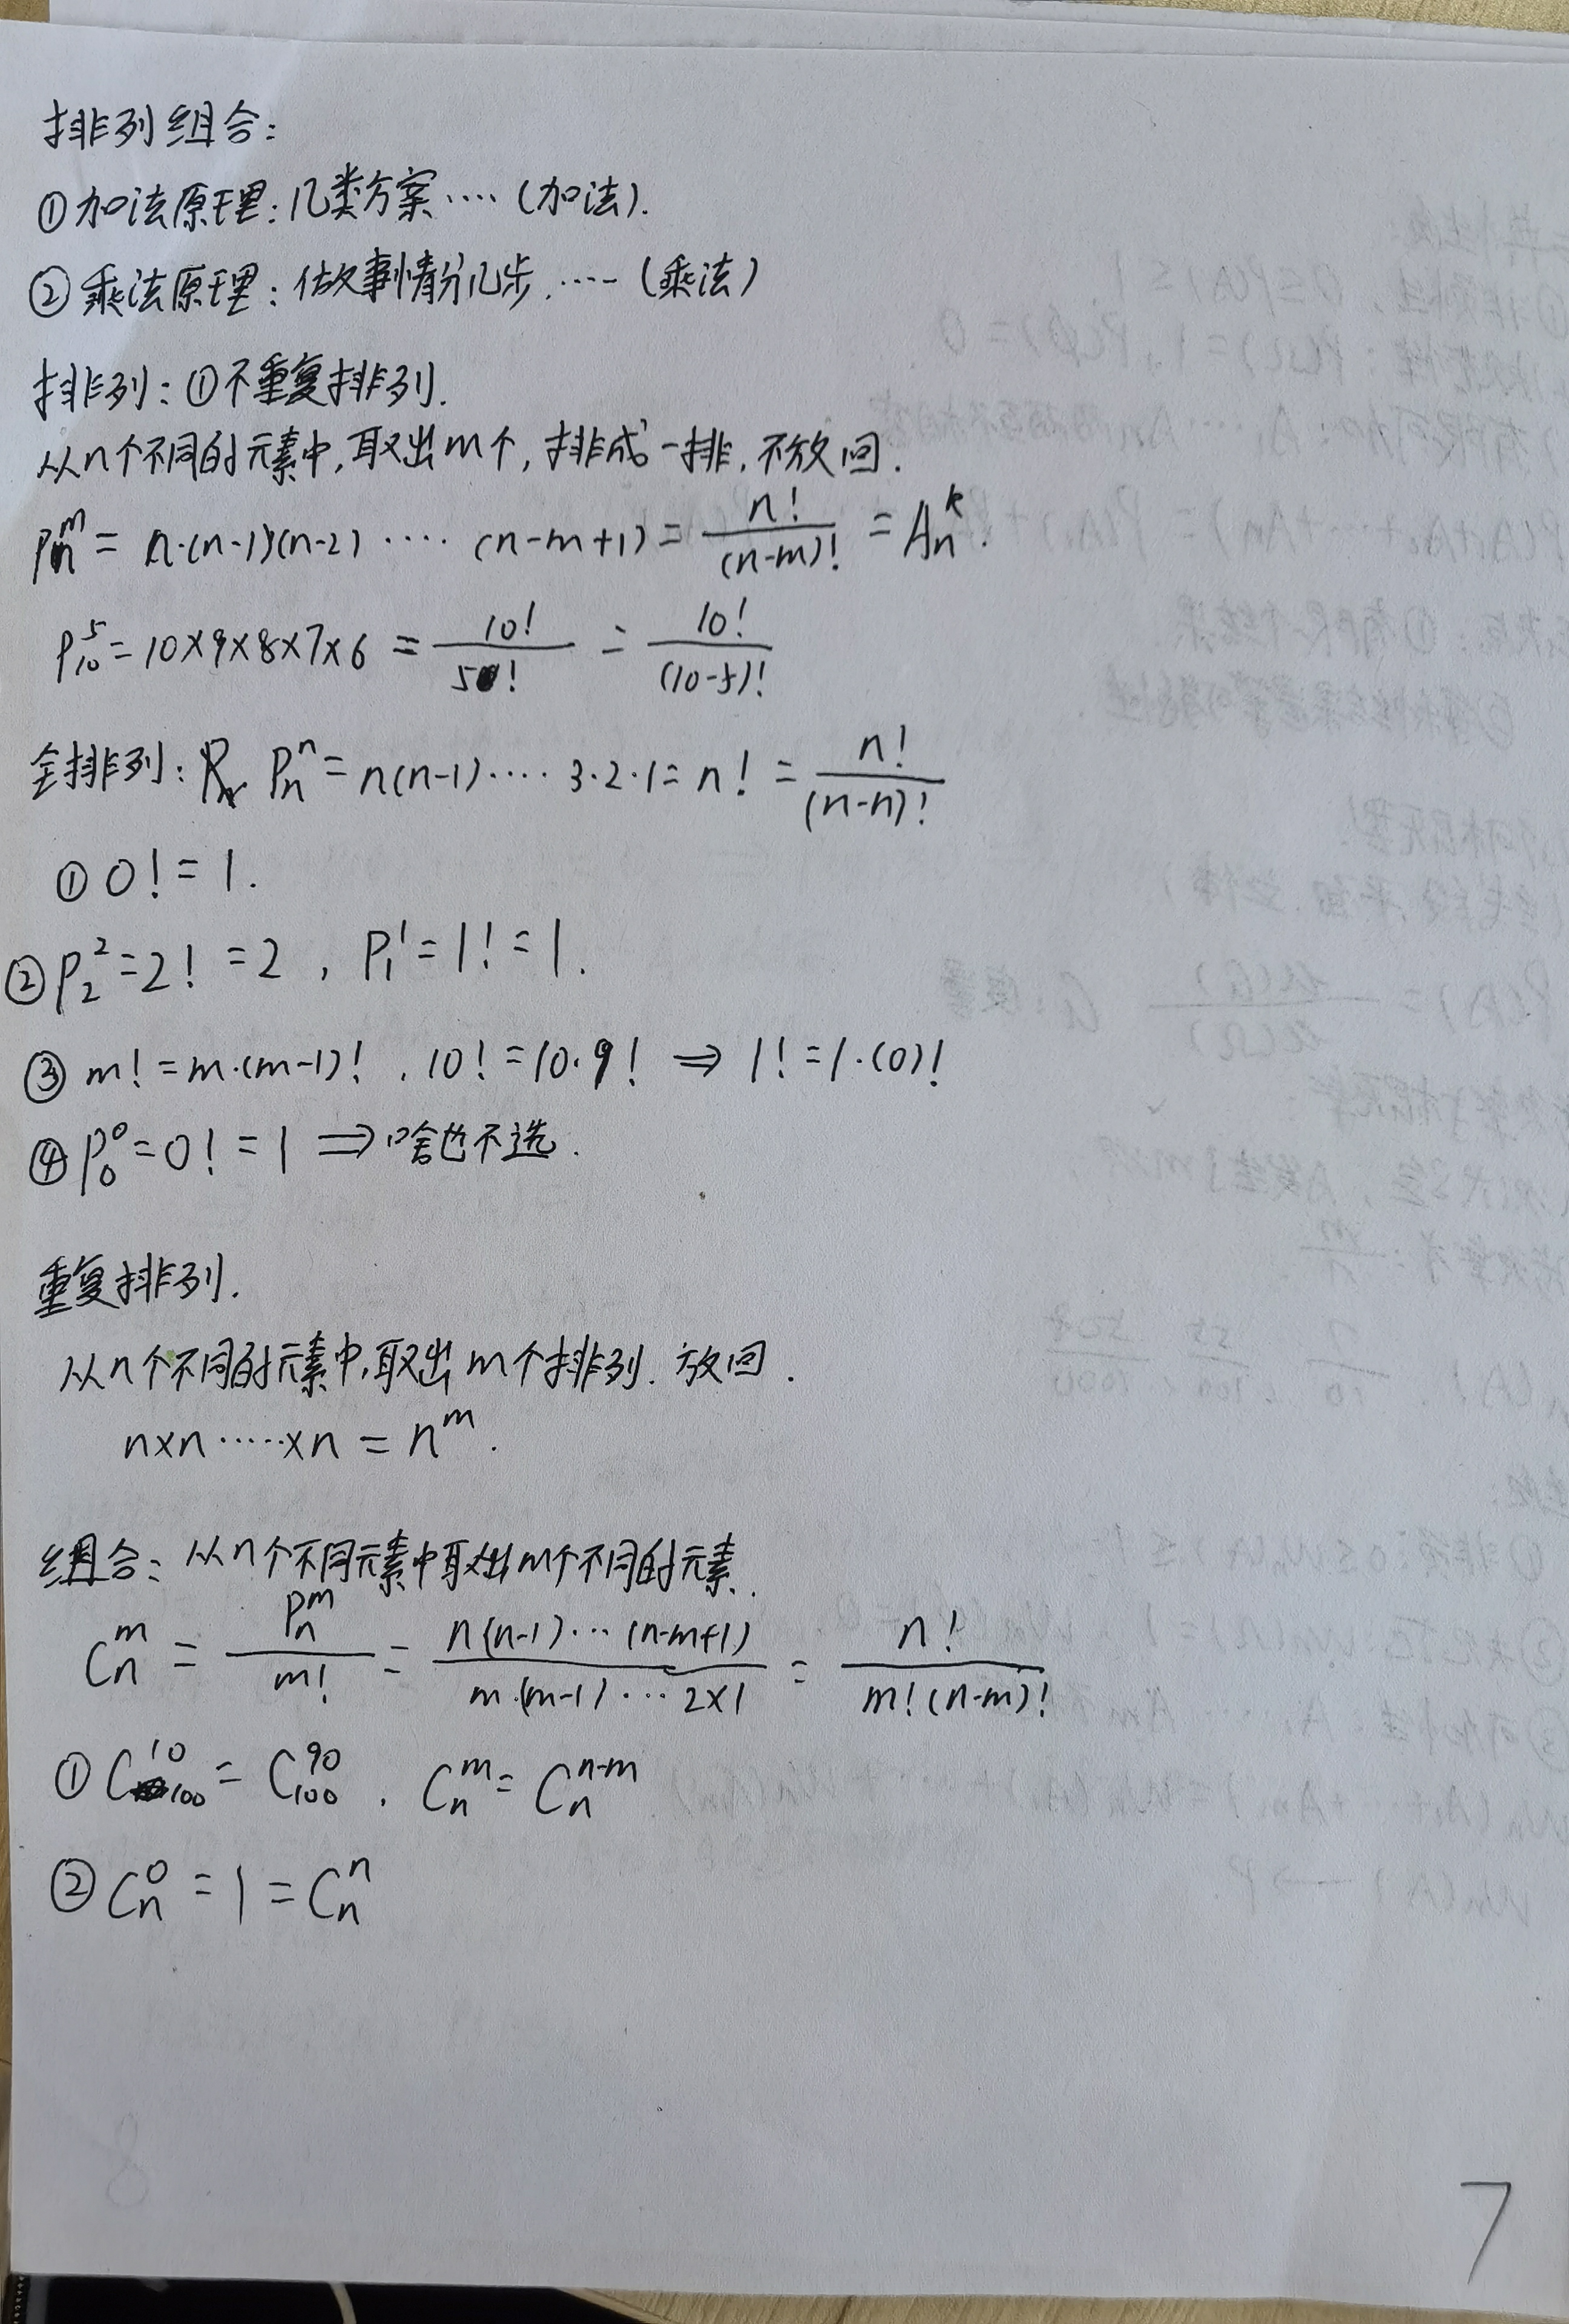 排列组合:
①加法原理: 几类方案····(加法).
②乘法原理: 做事情分几步.····(乘法)
排列: ①不重复排列.
从n个不同的元素中,取出m个,排成一排,不放回.
Pₙᵐ = n·(n-1)(n-2)····(n-m+1) = n!/(n-m)! = Aₙᵏ.
P₁₀⁵ = 10×9×8×7×6 = 10!/5! = 10!/(10-5)!
全排列: Pₙⁿ = n(n-1)····3·2·1 = n! = n!/(n-n)!
① 0! = 1.
② P₂² = 2! = 2 , P₁¹ = 1! = 1.
③ m! = m·(m-1)! , 10! = 10·9! ⇒ 1! = 1·(0)!
④ P₀⁰ = 0! = 1 ⇒ 啥也不选.
重复排列.
从n个不同的元素中,取出m个排列. 放回.
n×n·····×n = nᵐ.
组合: 从n个不同元素中取出m个不同的元素.
Cₙᵐ = Pₙᵐ/m! = n(n-1)···(n-m+1)/m·(m-1)···2×1 = n!/m!(n-m)!
① C₁₀₀¹⁰ = C₁₀₀⁹⁰ . Cₙᵐ = Cₙⁿ⁻ᵐ
② Cₙ⁰ = 1 = Cₙⁿ
7